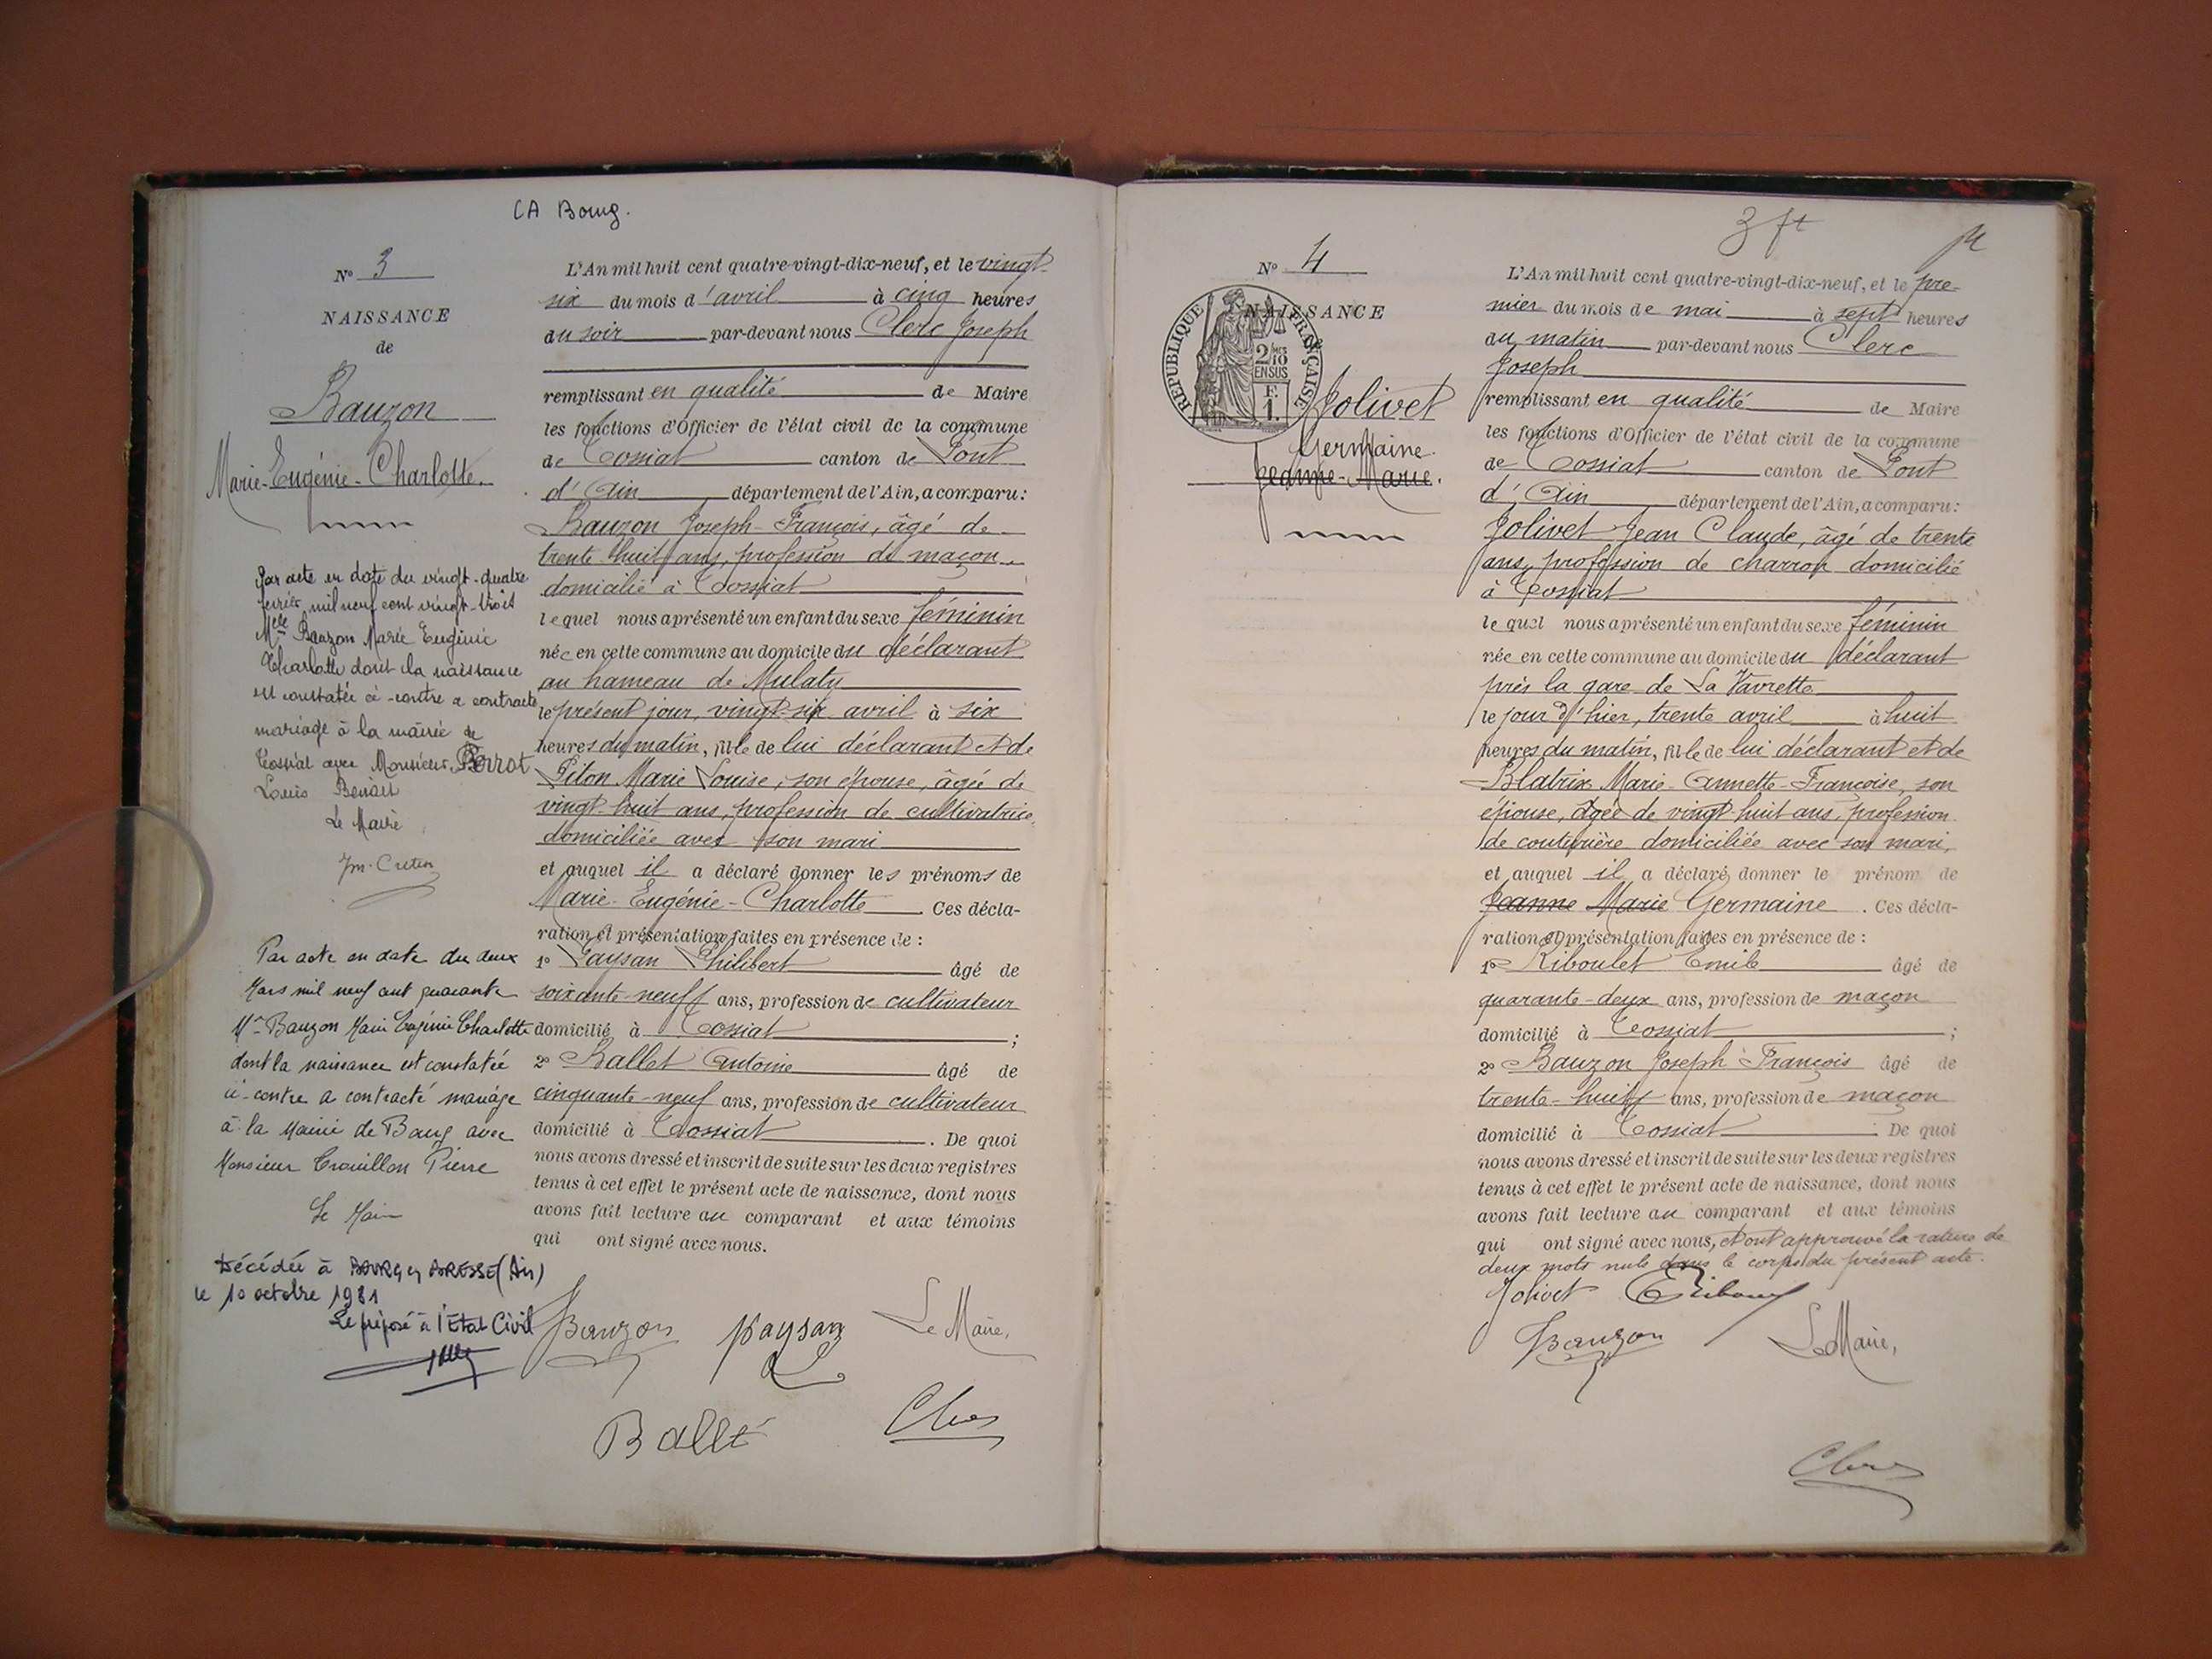 CA Bourg.
N° 3
NAISSANCE
de
Bauzon
Marie-Eugénie-Charlotte.
Par acte en date du vingt-quatre
février mil neuf cent vingt-trois
Melle Bauzon Marie Eugénie
Charlotte dont la naissance
est constatée ci-contre a contracté
mariage à la mairie de
Tossiat avec Monsieur Perrot
Louis Benoit
Le Maire
Par acte en date du deux
Mars mil neuf cent quarante
Me Bauzon Marie Eugénie Charlotte
dont la naissance est constatée
ci-contre a contracté mariage
à la Mairie de Bourg avec
Monsieur Trouillon Pierre
Le Maire
Décédée à BOURG en BRESSE (Ain)
le 10 octobre 1981
Le préposé à l'Etat Civil
L'An mil huit cent quatre-vingt-dix-neuf, et le vingt-
six du mois d'avril à cinq heures
du soir par-devant nous Clerc Joseph
remplissant en qualité de Maire
les fonctions d'Officier de l'état civil de la commune
de Tossiat canton de Pont
d'Ain département de l'Ain, a comparu:
Bauzon Joseph-François, âgé de
trente-huit ans, profession de maçon
domicilié à Tossiat
lequel nous a présenté un enfant du sexe féminin
née en cette commune au domicile du déclarant
au hameau de Mulaty
le présent jour, vingt-six avril à six
heures du matin, fille de lui déclarant et de
Piton Marie Louise, son épouse, âgée de
vingt-huit ans, profession de cultivatrice,
domiciliée avec son mari
et auquel il a déclaré donner les prénoms de
Marie-Eugénie-Charlotte. Ces décla-
ration et présentation faites en présence de :
1° Paysan Philibert âgé de
soixante-neuf ans, profession de cultivateur
domicilié à Tossiat ;
2° Ballet Antoine âgé de
cinquante-neuf ans, profession de cultivateur
domicilié à Tossiat. De quoi
nous avons dressé et inscrit de suite sur les deux registres
tenus à cet effet le présent acte de naissance, dont nous
avons fait lecture au comparant et aux témoins
qui ont signé avec nous.
Bauzon Paysan Le Maire,
Ballet Clerc
3 ft
N° 4
NAISSANCE
REPUBLIQUE FRANÇAISE
2/10 EN SUS
F. 1.
Jolivet
Germaine.
Jeanne-Marie.
L'An mil huit cent quatre-vingt-dix-neuf, et le pre-
mier du mois de mai à sept heures
du matin par-devant nous Clerc
Joseph
remplissant en qualité de Maire
les fonctions d'Officier de l'état civil de la commune
de Tossiat canton de Pont
d'Ain département de l'Ain, a comparu:
Jolivet Jean Claude, âgé de trente
ans, profession de charron domicilié
à Tossiat
lequel nous a présenté un enfant du sexe féminin
née en cette commune au domicile du déclarant
près la gare de La Vavrette
le jour d'hier, trente avril à huit
heures du matin, fille de lui déclarant et de
Blatrix Marie-Annette-Françoise, son
épouse, âgée de vingt-huit ans, profession
de couturière domiciliée avec son mari,
et auquel il a déclaré donner le prénom de
Jeanne Marie Germaine. Ces décla-
ration et présentation faites en présence de :
1° Riboulet Emile âgé de
quarante-deux ans, profession de maçon
domicilié à Tossiat ;
2° Bauzon Joseph-François âgé de
trente-huit ans, profession de maçon
domicilié à Tossiat. De quoi
nous avons dressé et inscrit de suite sur les deux registres
tenus à cet effet le présent acte de naissance, dont nous
avons fait lecture au comparant et aux témoins
qui ont signé avec nous, et ont approuvé la rature de
deux mots nuls dans le corps du présent acte.
Jolivet
Bauzon Le Maire,
Clerc